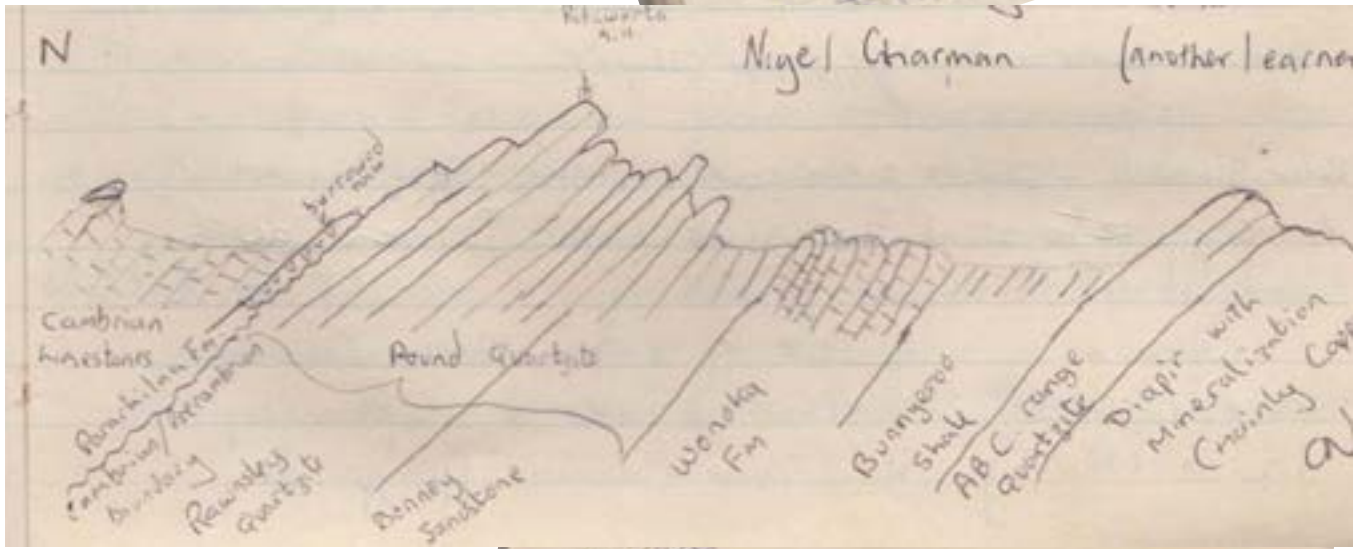 N
Nigel Charman (another learner
burrowed
Cambrian
limestones
Parachilna Fm
Cambrian/Precambrian
boundary
Pound Quartzite
Rawnsley
Quartzite
Bonney
Sandstone
Wonoka
Fm
Bunnyeroo
Shale
ABC range
Quartzite
Diapir with
Mineralization
(mainly